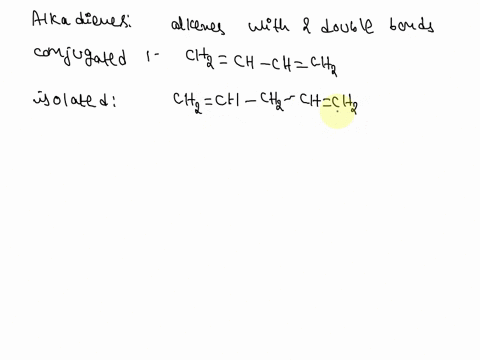 Alkadienes: alkenes with 2 double bonds
conjugated :- CH2=CH-CH=CH2
isolated: CH2=CH-CH2-CH=CH2